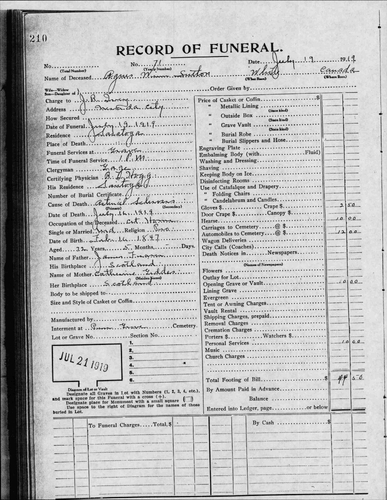 210
RECORD OF FUNERAL.
No. No. 71 Date, July 19 1919
(Total Number) (Yearly Number)
Name of Deceased Agnes Sutton White Canada
(What Race) (Where Born)
Order Given by
Charge to J. B.
Address City
How Secured
Date of Funeral July 19, 1919
Residence Saratoga
Place of Death
Funeral Services at Grave
Time of Funeral Service 1 P.M.
Clergyman
Certifying Physician
His Residence Saratoga
Number of Burial Certificate
Cause of Death
(Primary) (Secondary)
Date of Death July 16, 1919
Occupation of the Deceased
Single or Married Md. Religion
Date of Birth Feb. 14, 1897
Aged, 22 Years, Months, Days.
Name of Father James
His Birthplace Scotland
Name of Mother Catherine
Her Birthplace Scotland
Body to be shipped to
Size and Style of Casket or Coffin,
Manufactured by
Interment at Cemetery
Lot or Grave No. Section No.
JUL 21 1919
1.
2.
3.
4.
5.
6.
7.
8.
Diagram of Lot or Vault
Designate all Graves in Lot with Numbers (1, 2, 3, 4, etc.),
and mark space for this Funeral with a cross (+).
Designate place for Monument with a small square
Use space to right of Diagram for the names of those
buried in Lot.
Price of Casket or Coffin,
" Metallic Lining
" Outside Box
" Grave Vault
" Burial Robe
" Burial Slippers and Hose
Engraving Plate
Embalming Body (with Fluid)
Washing and Dressing,
Shaving
Keeping Body on Ice
Disinfecting Rooms
Use of Catafalque and Drapery
" Folding Chairs
" Candelabrum and Candles
Gloves $ Crape $ 2 50
Door Crape $ Cemetery $
Hearse 10 00
Carriages to Cemetery @ $
Automobiles to Cemetery @ $ 12 00
Wagon Deliveries
City Calls (Coaches)
Death Notices in Newspapers
Flowers
Outlay for Lot
Opening Grave or Vault 10 00
Lining Grave
Evergreen
Tent or Awning Charges
Vault Rental
Shipping Charges, prepaid
Removal Charges
Cremation Charges
Porters $ Watchers $
Personal Services 10 00
Music
Church Charges
Total Footing of Bill, $ 44 50
By Amount Paid in Advance
Balance
Entered into Ledger, page or below
To Funeral Charges $ By Cash $